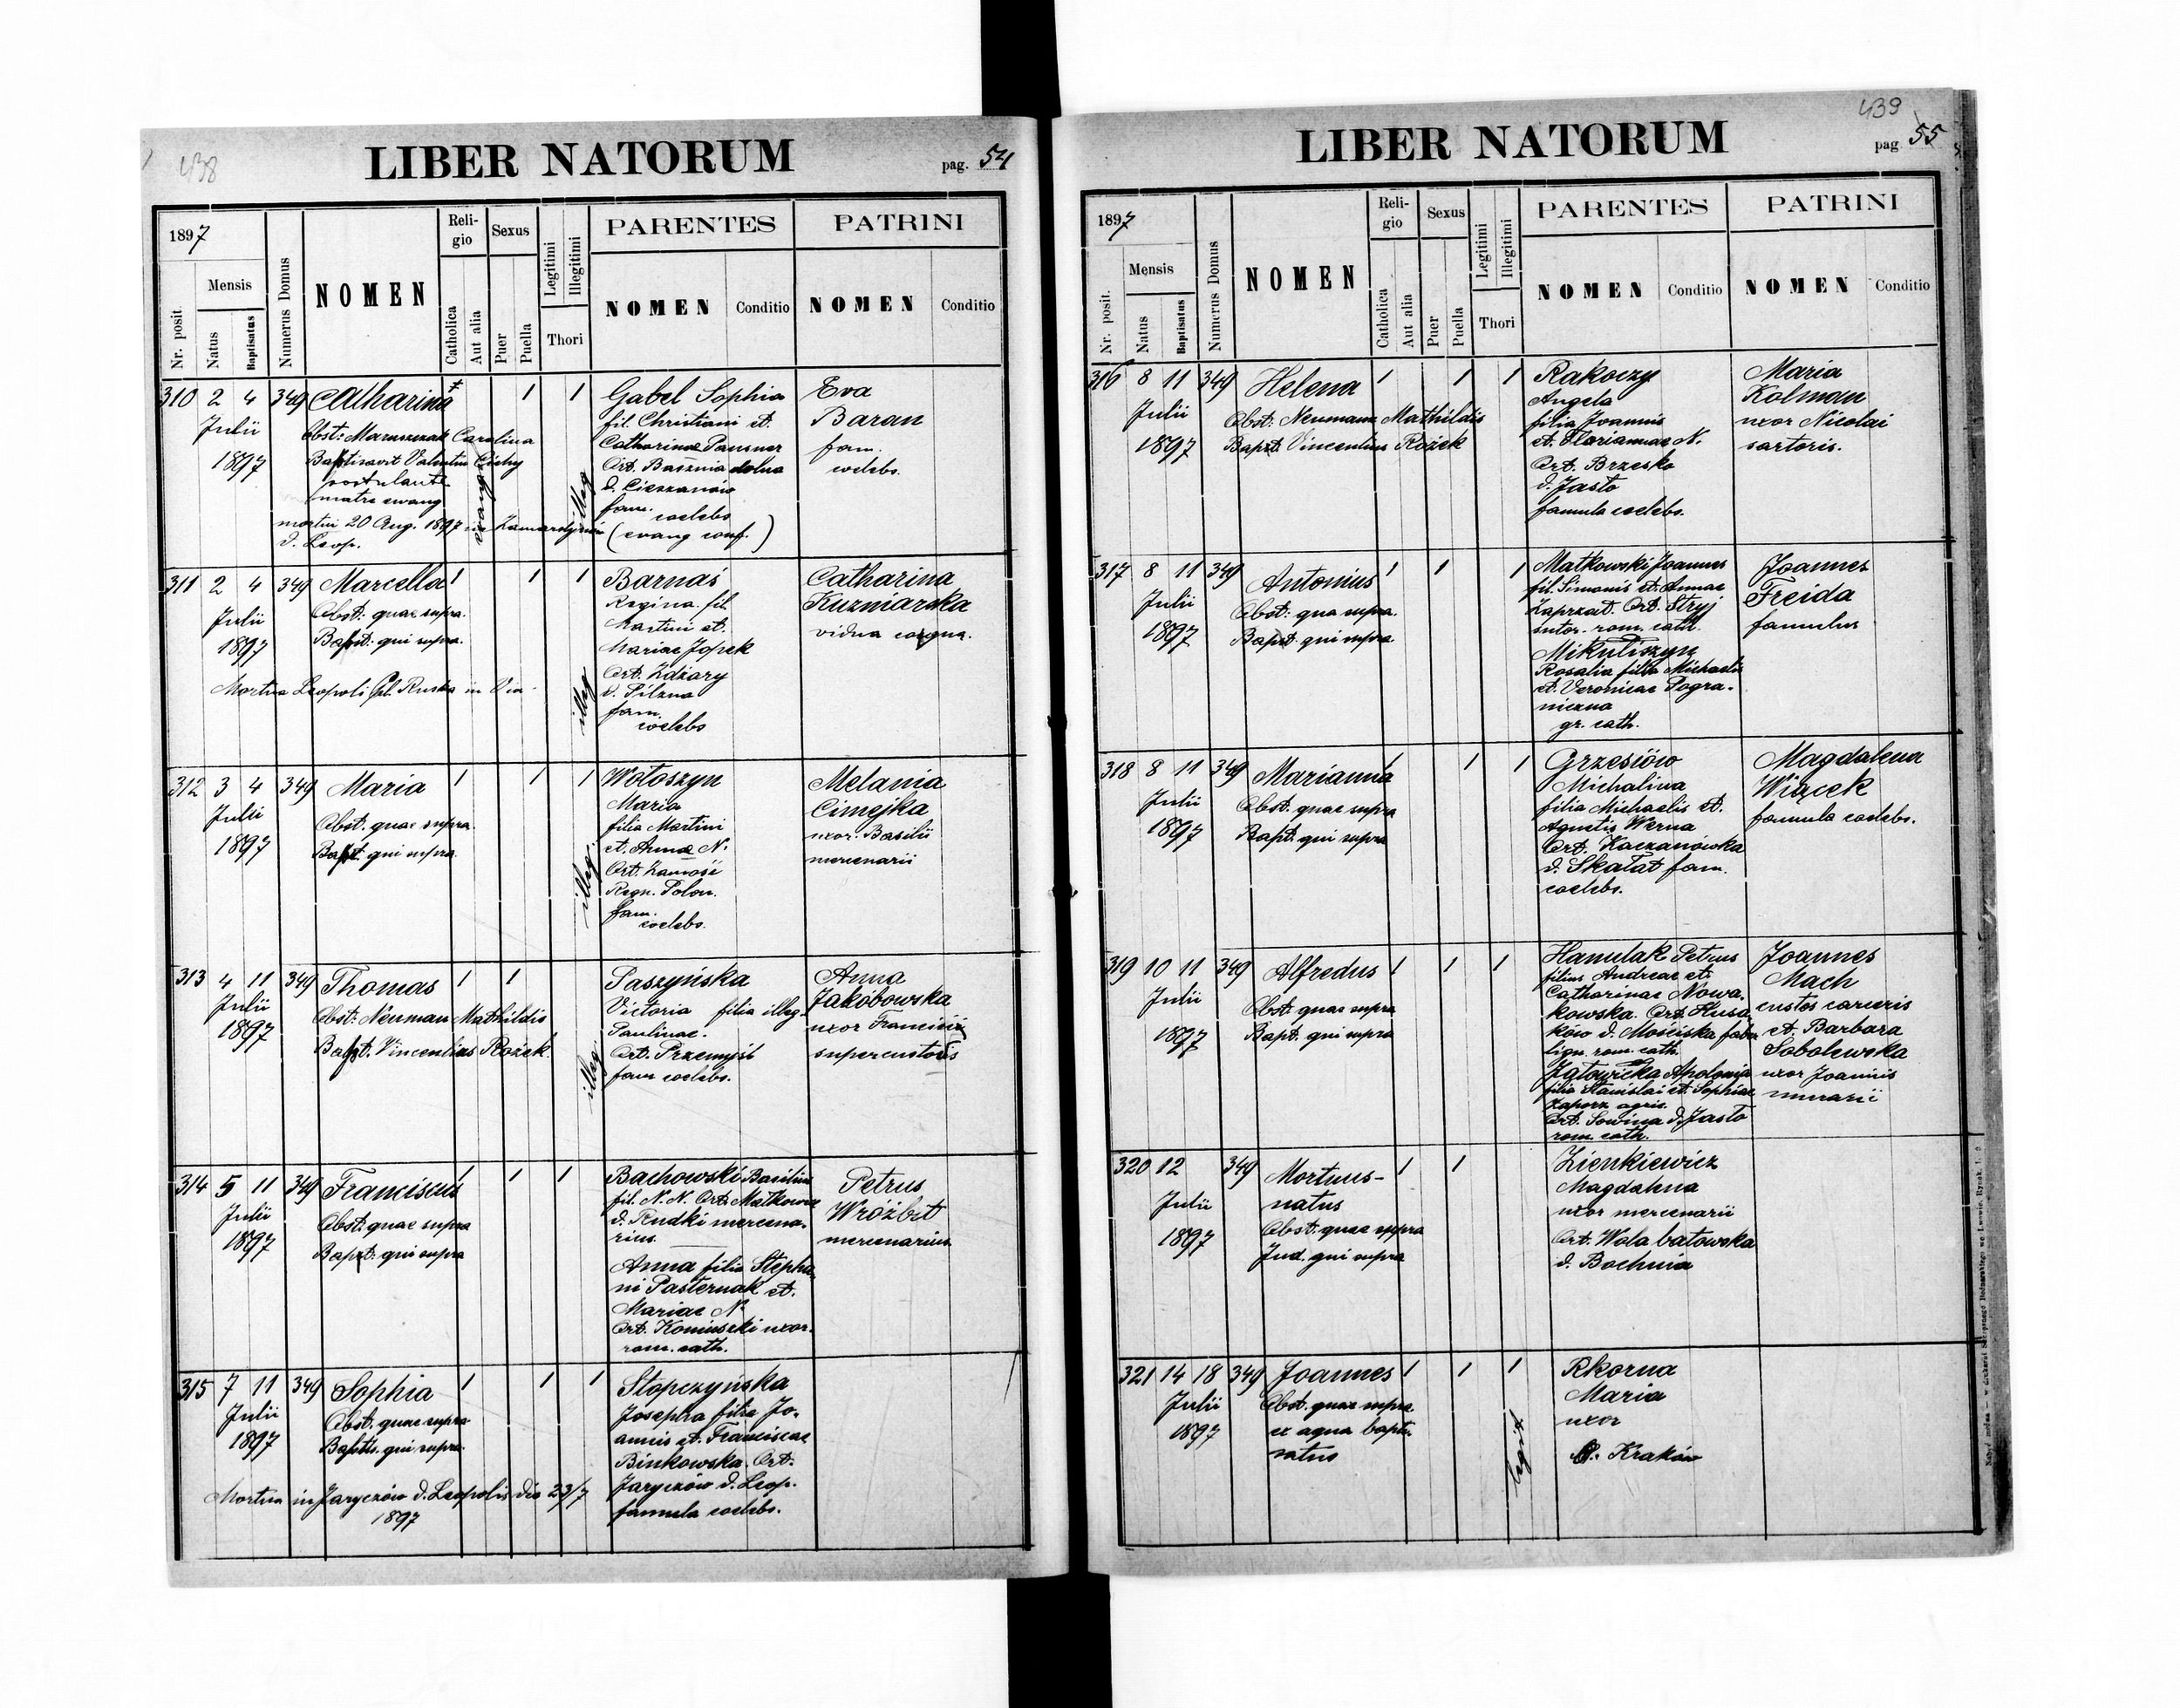 438
LIBER NATORUM
pag. 54
1897
Nr. posit.
Mensis
Natus
Baptisatus
Numerus Domus
NOMEN
Reli-
gio
Catholica
Aut alia
Sexus
Puer
Puella
Legitimi
Illegitimi
Thori
PARENTES
NOMEN
Conditio
PATRINI
NOMEN
Conditio
310 2 4 349 Catharina 1 1
Julii
1897
Obst: Maruszczak Carolina
Baptisavit Valentin Cichy
postulante
matre evang
mortui 20 Aug. 1897 in
d. Leop.
evang
illeg
Gabel Sophia
fil. Christiani et.
Catharinae Pausner
Ort. Basznia dolna
d. Cieszanów
fam. coelebs
(evang conf.)
Eva
Baran
fam.
coelebs.
311 2 4 349 Marcella 1 1 1
Julii
1897
Obst: quae supra.
Bapt: qui supra.
Mortua Leopoli Pl. Ruska in Via
illeg
Barnaś
Regina fil
Martini et.
Mariae Jopek
Ort. Zdżary
d. Pilzna
fam.
coelebs
Catharina
Kuzniarska
vidua coqua.
312 3 4 349 Maria 1 1 1
Julii
1897
Obst. quae supra.
Bapt. qui supra.
illeg.
Wołoszyn
Maria
filia Martini
et. Anna N.
Ort. Zamość
Regn. Polon.
fam.
coelebs.
Melania
Cimejka
uxor. Basilii
mercenarii
313 4 11 349 Thomas 1 1
Julii
1897
Obst: Neuman Mathildis
Bapt. Vincentius Rożek.
illeg.
Paszyńska
Victoria filia illeg.
Paulinae.
Ort. Przemyśl
fam coelebs.
Anna
Jakóbowska
uxor Francisci
supercustodis
314 5 11 349 Franciscus 1 1 1
Julii
1897
Obst. quae supra
Bapt: qui supra
Bachowski Basilius
fil. N. N. Ort. Małkowice
d. Rudki mercena-
rius.
Anna filia Stepha
ni Pasternak et.
Mariae N.
Ort. Koniuszki uxor.
rom. cath.
Petrus
Wróżbit
mercenarius
315 7 11 349 Sophia 1 1 1
Julii
1897
Obst. quae supra
Baptis. qui supra.
Mortua in Jaryczów d. Leopolis die 23/7
1897
Stopczyńska
Josepha filia Jo-
annis et. Franciscae
Binkowska. Ort.
Jaryczów d. Leop.
famula coelebs.
439
LIBER NATORUM
pag. 55
1897
Nr. posit.
Mensis
Natus
Baptisatus
Numerus Domus
NOMEN
Reli-
gio
Catholica
Aut alia
Sexus
Puer
Puella
Legitimi
Illegitimi
Thori
PARENTES
NOMEN
Conditio
PATRINI
NOMEN
Conditio
316 8 11 349 Helena 1 1 1
Julii
1897
Obst: Neumann Mathildis
Bapt. Vincentius Rożek
Rakoczy
Angela
filia Joannis
et. Mariannae N.
Ort. Brzesko
d. Jasło
famula coelebs.
Maria
Kolman
uxor Nicolai
sartoris.
317 8 11 349 Antonius 1 1 1
Julii
1897
Obst: qua supra.
Bapt: qui supra
Matkowski Joannes
fil. Simonis et. Annae
Zaprzał. Ort. Stryj
sutor. rom. cath.
Mikuliszyn
Rosalia filia Michaelis
et. Veronicae Pogra-
niczna
gr. cath.
Joannes
Freida
famulus
318 8 11 349 Marianna 1 1 1
Julii
1897
Obst. quae supra
Bapt. qui supra
Grzesiów
Michalina
filia Michaelis et.
Agnetis Werna
Ort. Kaczanówka
d. Skałat fam.
coelebs.
Magdalena
Wiącek
famula coelebs.
319 10 11 349 Alfredus 1 1 1
Julii
1897
Obst. quae supra
Bapt. qui supra
Hanulak Petrus
filius Andreae et.
Catharinae Nowa-
kowska. Ort. Husa-
ków d. Mościska faber
lign. rom. cath.
Jatowicka Apolonia
filia Stanislai et. Sophiae
Ort. Sowina d. Jasło
rom. cath.
Joannes
Mach
custos carceris
et. Barbara
Sobolewska
uxor Joannis
murarii
320 12 349 Mortuus- 1 1
Julii
1897
natus
Obst. quae supra
Jud. qui supra
Zienkiewicz
Magdalena
uxor mercenarii
Ort. Wola batowska
d. Bochnia
321 14 18 349 Joannes 1 1 1
Julii
1897
Obst. quae supra
ex aqua bapti-
satus
legit
Rkorna
Maria
uxor
O. Kraków